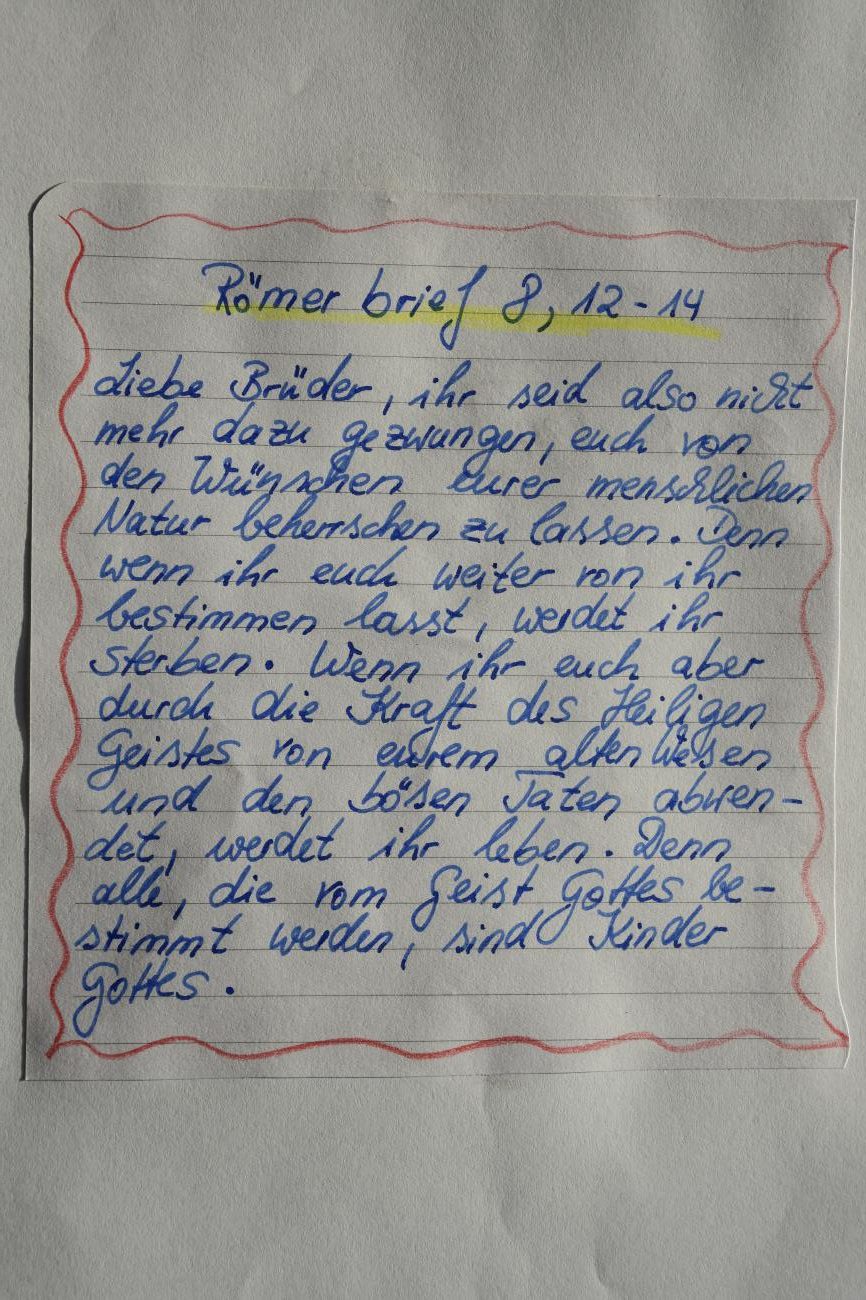 Römer brief 8, 12-14
Liebe Brüder, ihr seid also nicht
mehr dazu gezwungen, euch von
den Wünschen eurer menschlichen
Natur beherrschen zu lassen. Denn
wenn ihr euch weiter von ihr
bestimmen lasst, werdet ihr
sterben. Wenn ihr euch aber
durch die Kraft des Heiligen
Geistes von eurem alten Wesen
und den bösen Taten abwen-
det, werdet ihr leben. Denn
alle, die vom Geist Gottes be-
stimmt werden, sind Kinder
Gottes.